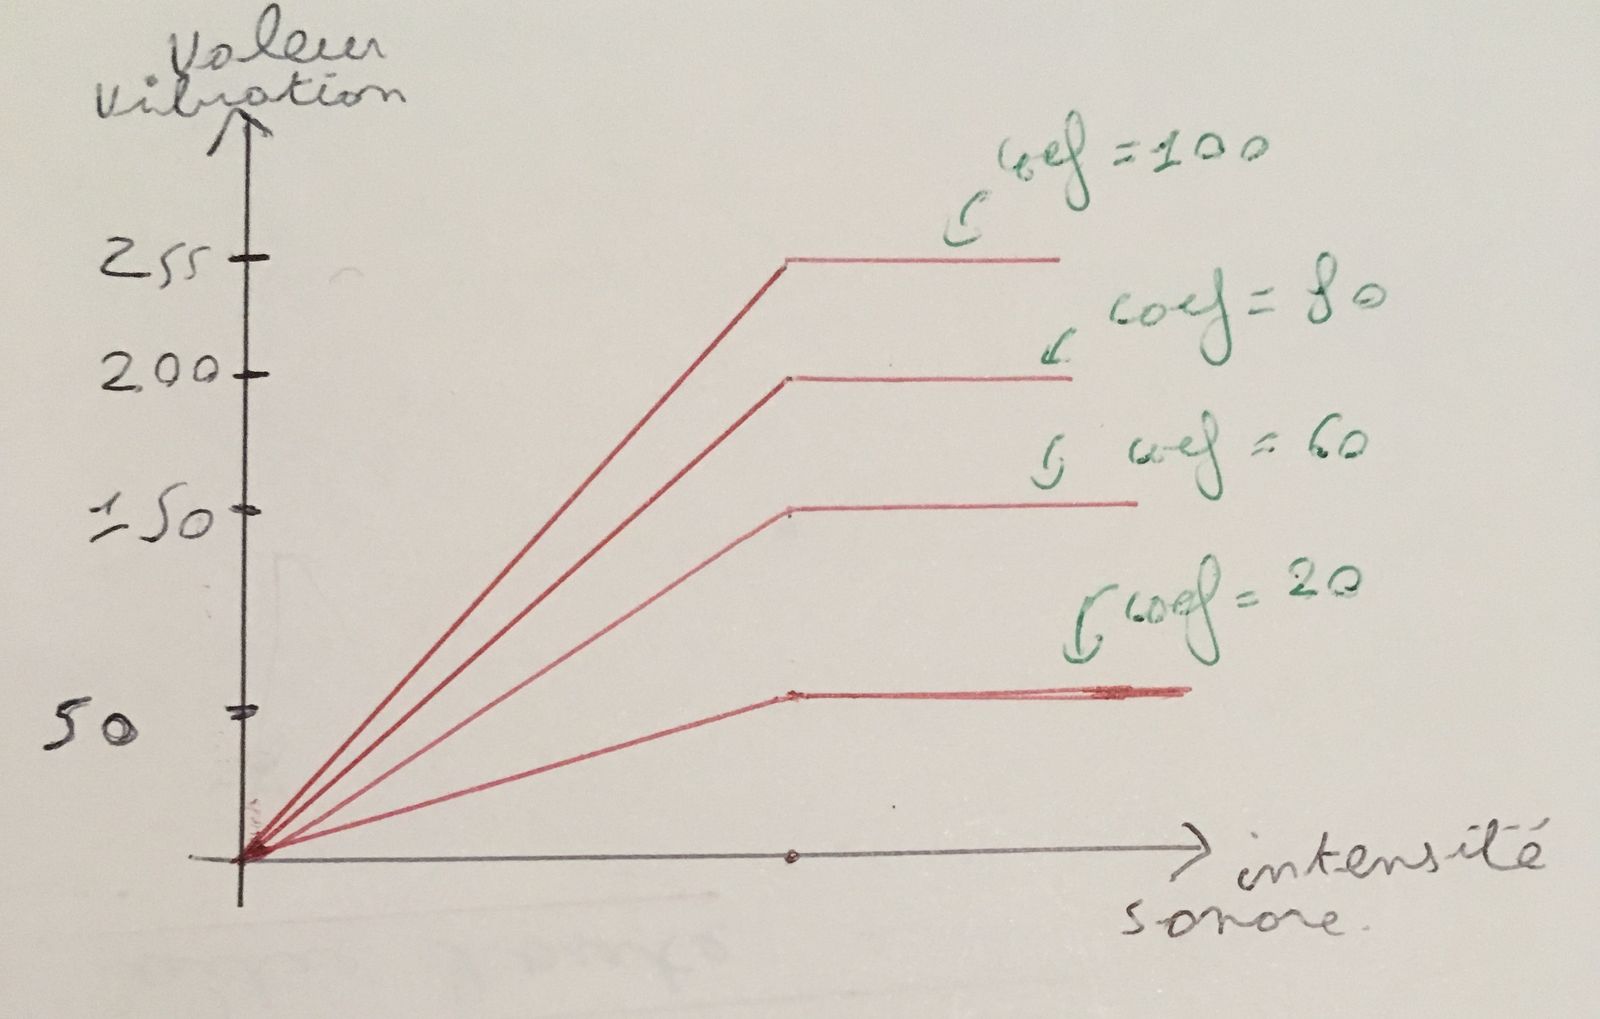 Valeur
vibration
coef = 100
255
coef = 80
200
coef = 60
150
coef = 20
50
intensité
sonore.